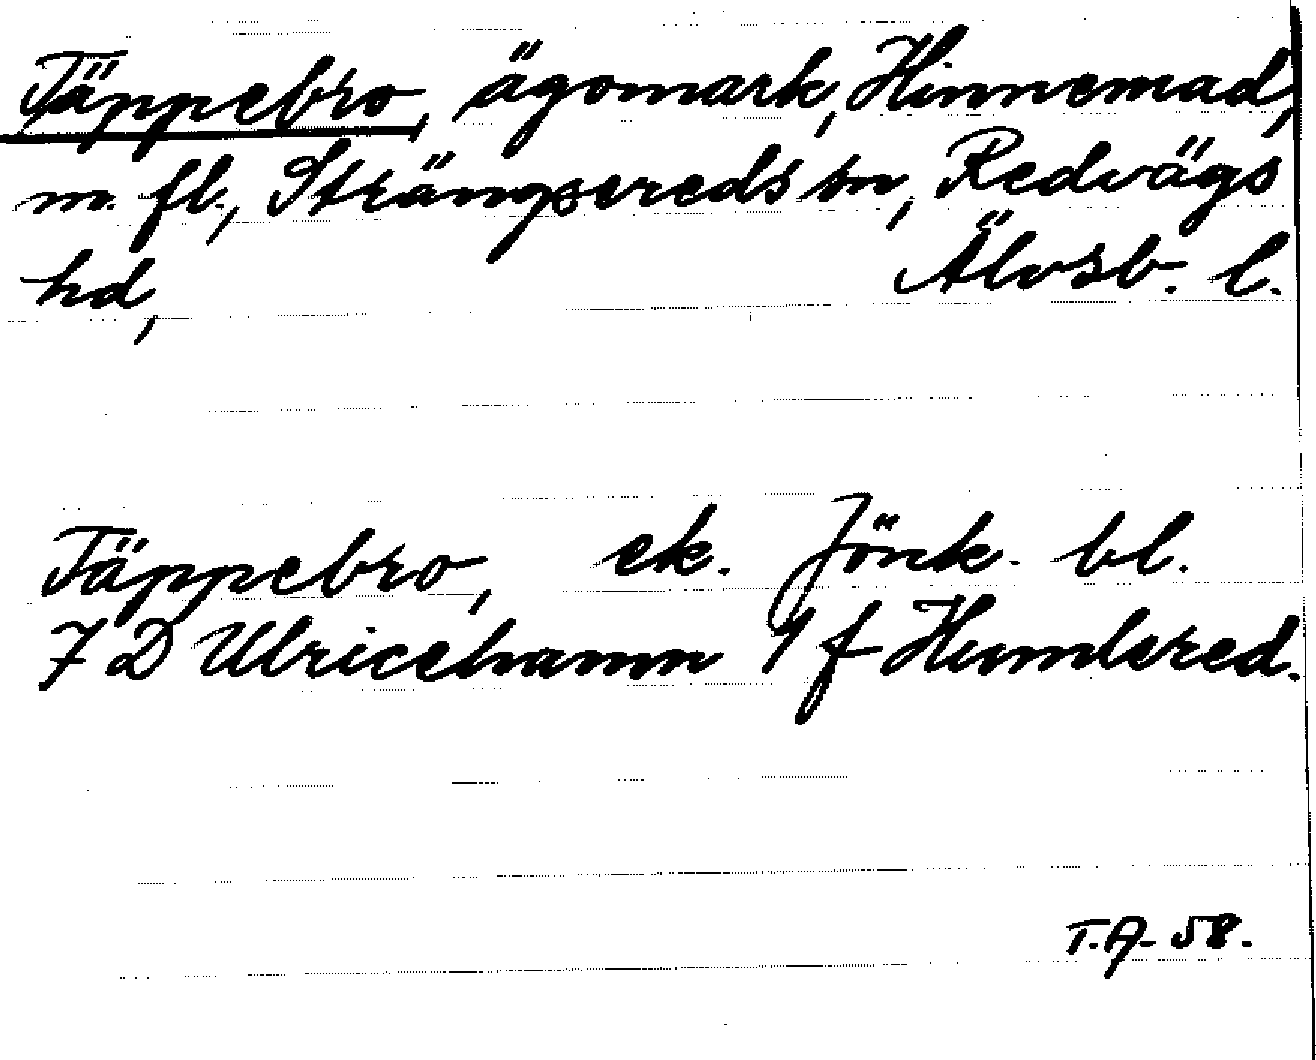 Täppebro, ägomark, Hinnemad,
m. fl., Strängsereds sn, Redvägs
hd, Älvsb. l.
Täppebro, ek. Jönk. bl.
7 D Ulricehamn 9 f Humlered.
T.A. 58.